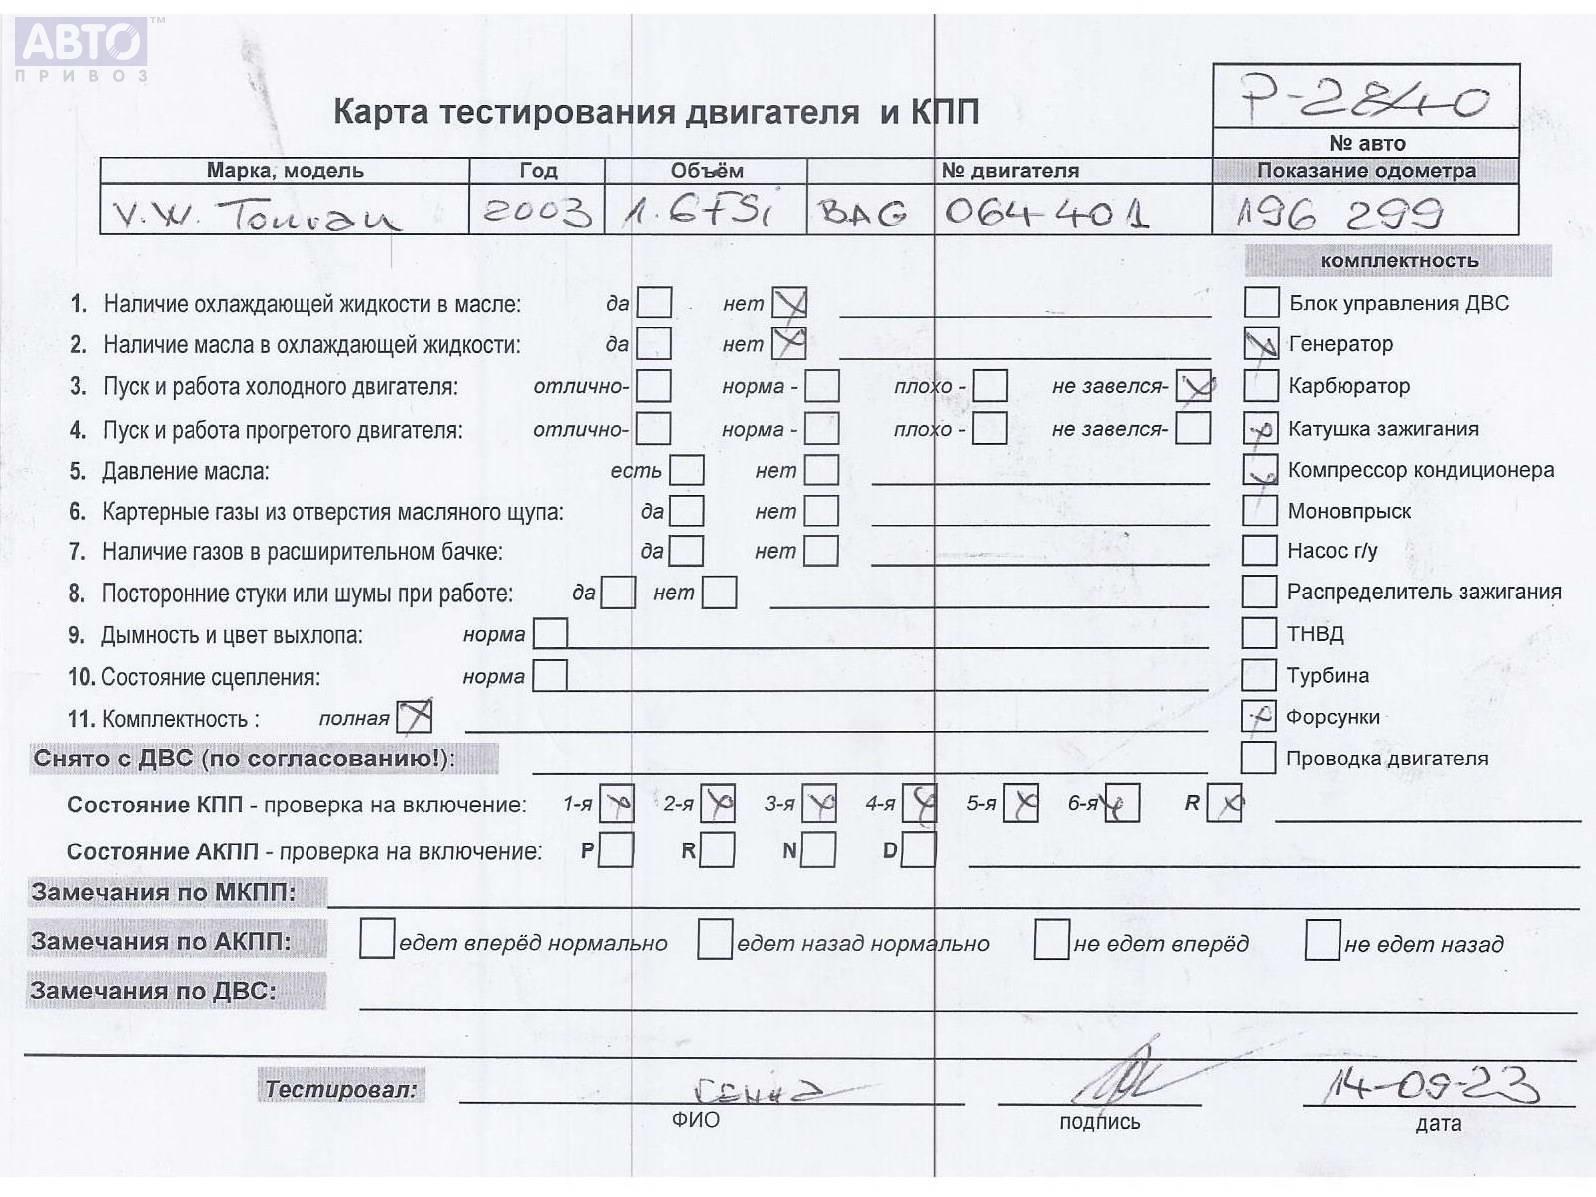 АВТО™
ПРИВОЗ
Карта тестирования двигателя и КПП
P-2840
№ авто
Марка, модель Год Объём № двигателя Показание одометра
V.W. Touran 2003 1.6FSi BAG 064401 196 299
комплектность
1. Наличие охлаждающей жидкости в масле: да нет Блок управления ДВС
2. Наличие масла в охлаждающей жидкости: да нет Генератор
3. Пуск и работа холодного двигателя: отлично- норма - плохо - не завелся- Карбюратор
4. Пуск и работа прогретого двигателя: отлично- норма - плохо - не завелся- Катушка зажигания
5. Давление масла: есть нет Компрессор кондиционера
6. Картерные газы из отверстия масляного щупа: да нет Моновпрыск
7. Наличие газов в расширительном бачке: да нет Насос г/у
8. Посторонние стуки или шумы при работе: да нет Распределитель зажигания
9. Дымность и цвет выхлопа: норма ТНВД
10. Состояние сцепления: норма Турбина
11. Комплектность : полная Форсунки
Снято с ДВС (по согласованию!): Проводка двигателя
Состояние КПП - проверка на включение: 1-я 2-я 3-я 4-я 5-я 6-я R
Состояние АКПП - проверка на включение: P R N D
Замечания по МКПП:
Замечания по АКПП: едет вперёд нормально едет назад нормально не едет вперёд не едет назад
Замечания по ДВС:
Тестировал: Генна 14-09-23
ФИО подпись дата